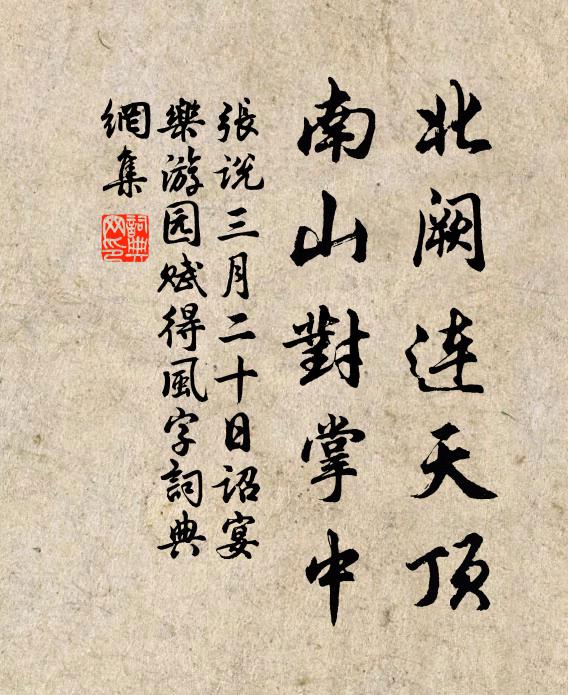 北阙连天顶
南山對掌中
張说三月二十日诏宴
樂游园赋得風字詞典
網集
詞典网印